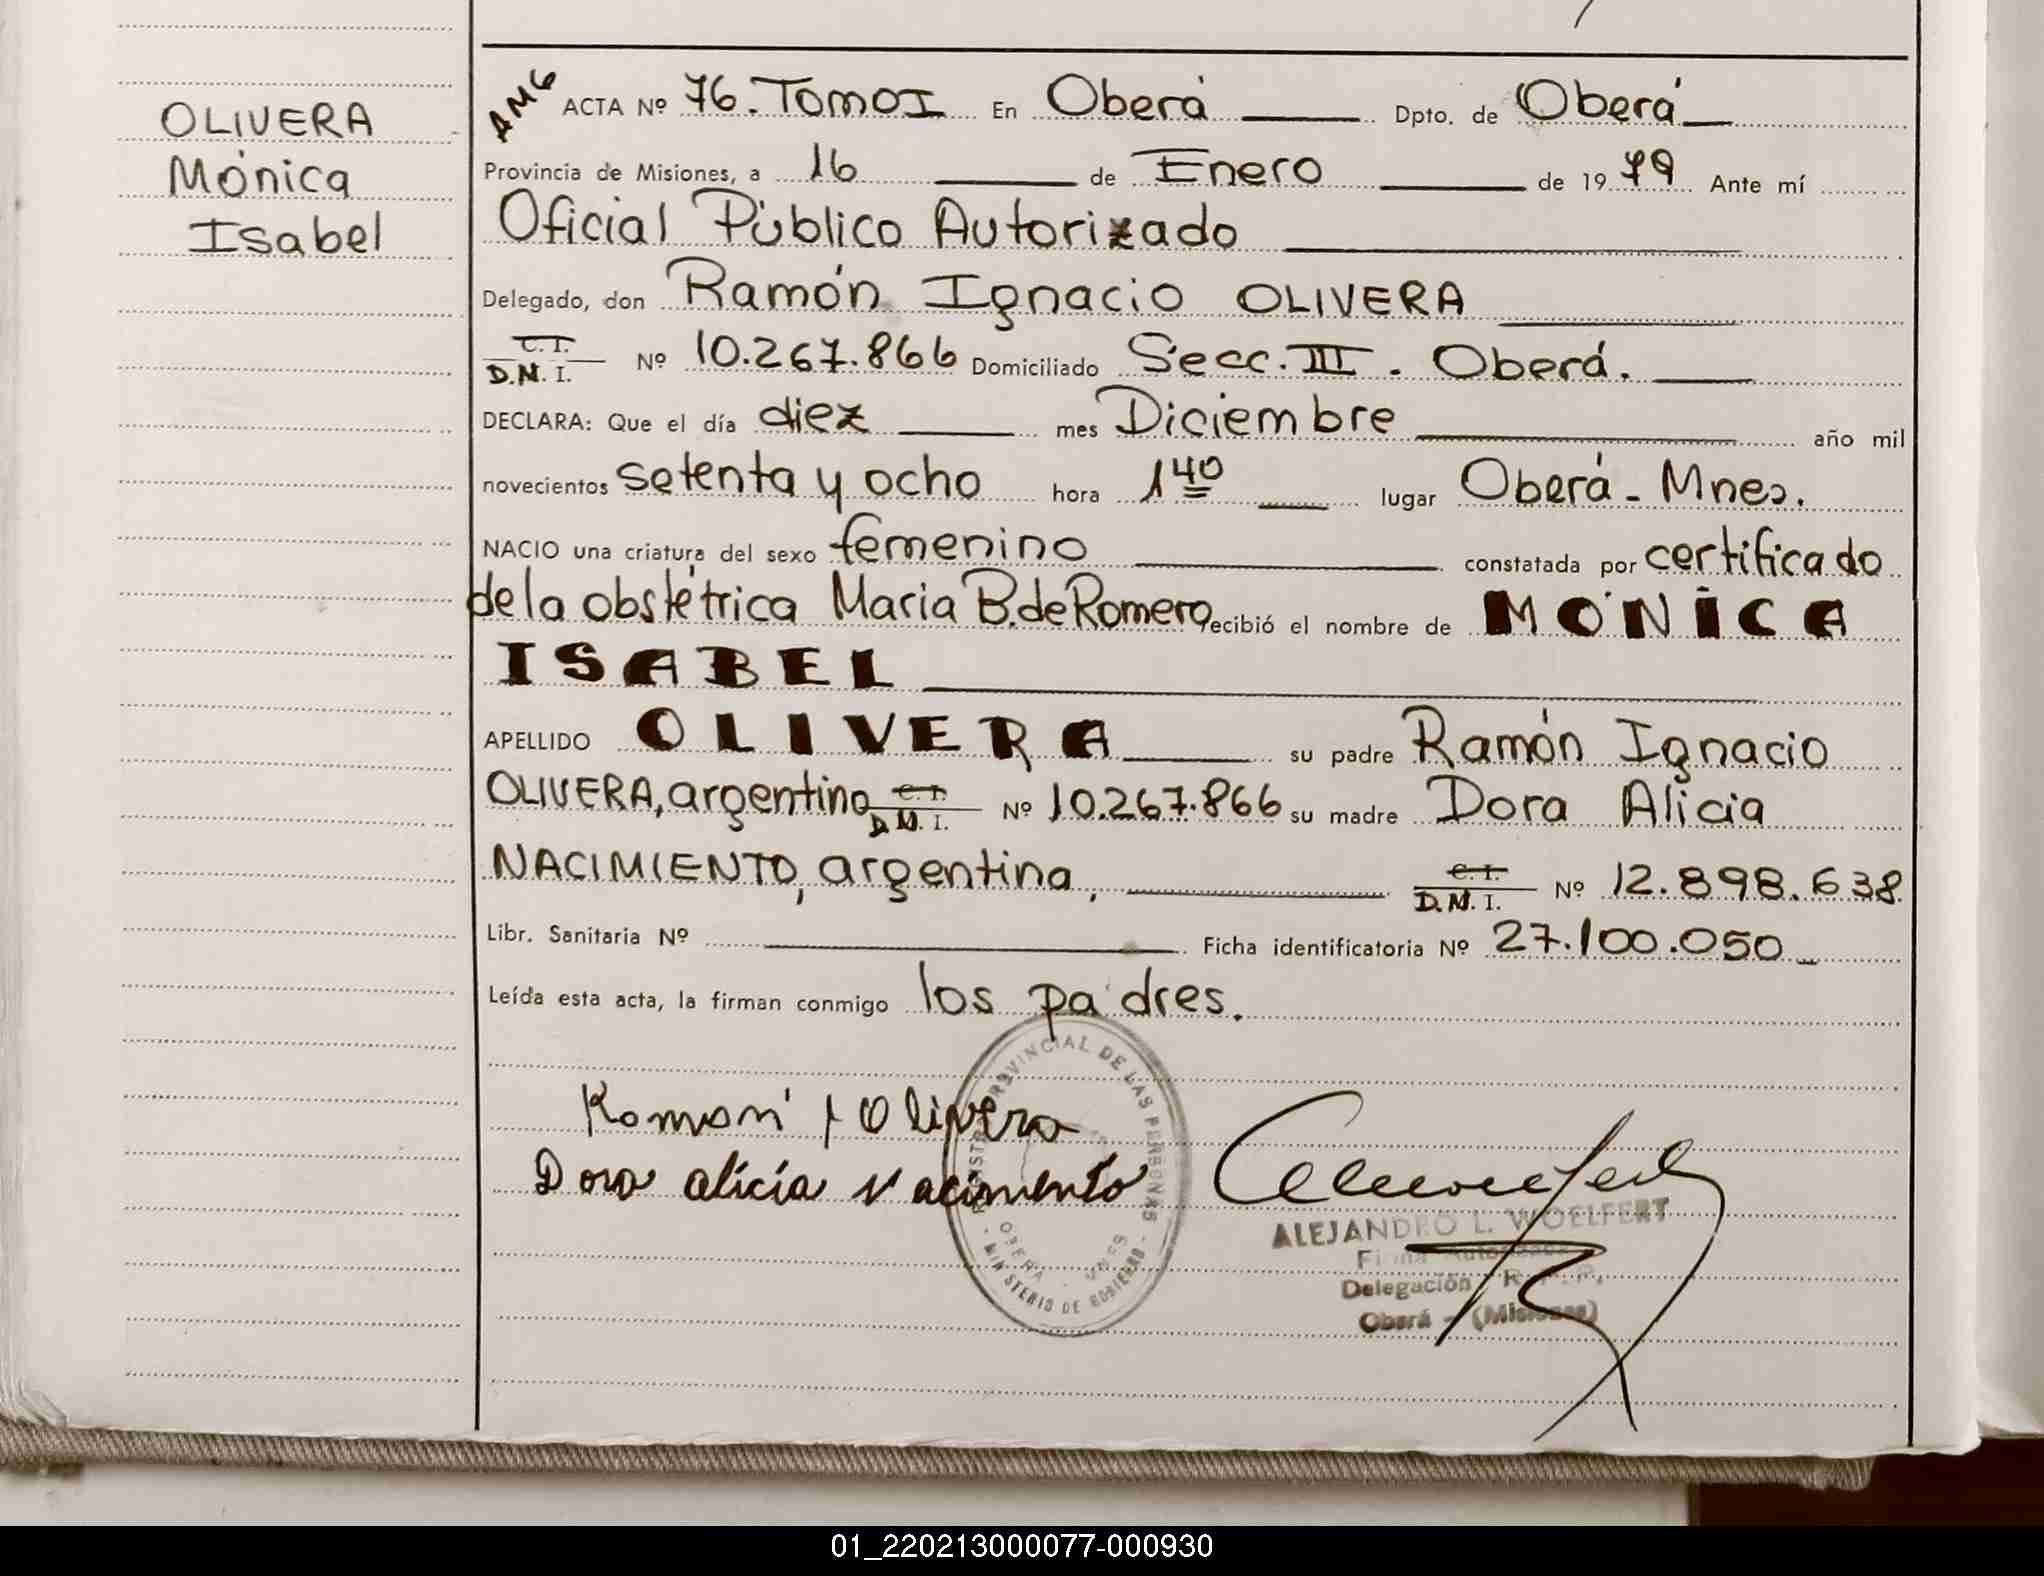 OLIVERA
Mónica
Isabel
AMG ACTA Nº 76. TOMO I En Oberá Dpto. de Oberá
Provincia de Misiones, a 16 de Enero de 1979 Ante mí
Oficial Público Autorizado
Delegado, don Ramón Ignacio OLIVERA
C. I.
D.N. I. Nº 10.267.866 Domiciliado Secc. III. Oberá.
DECLARA: Que el día diez mes Diciembre año mil
novecientos setenta y ocho hora 1 40 lugar Oberá - Mnes.
NACIO una criatura del sexo femenino constatada por certificado
de la obstétrica Maria B. de Romero recibió el nombre de MÓNICA
ISABEL
APELLIDO OLIVERA su padre Ramón Ignacio
OLIVERA, argentino C. I.
D.N. I. Nº 10.267.866 su madre Dora Alicia
NACIMIENTO, argentina, C. I.
D.N. I. Nº 12.898.638
Libr. Sanitaria Nº Ficha identificatoria Nº 27.100.050
Leída esta acta, la firman conmigo los padres.
Ramón I Olivera
Dora alicia Nacimento
REGISTRO PROVINCIAL DE LAS PERSONAS
OBERA - MNES
- MINISTERIO DE GOBIERNO -
ALEJANDRO L. WOELFERT
Firma Autorizada
Delegación R. P. P.
Oberá - (Misiones)
01_220213000077-000930